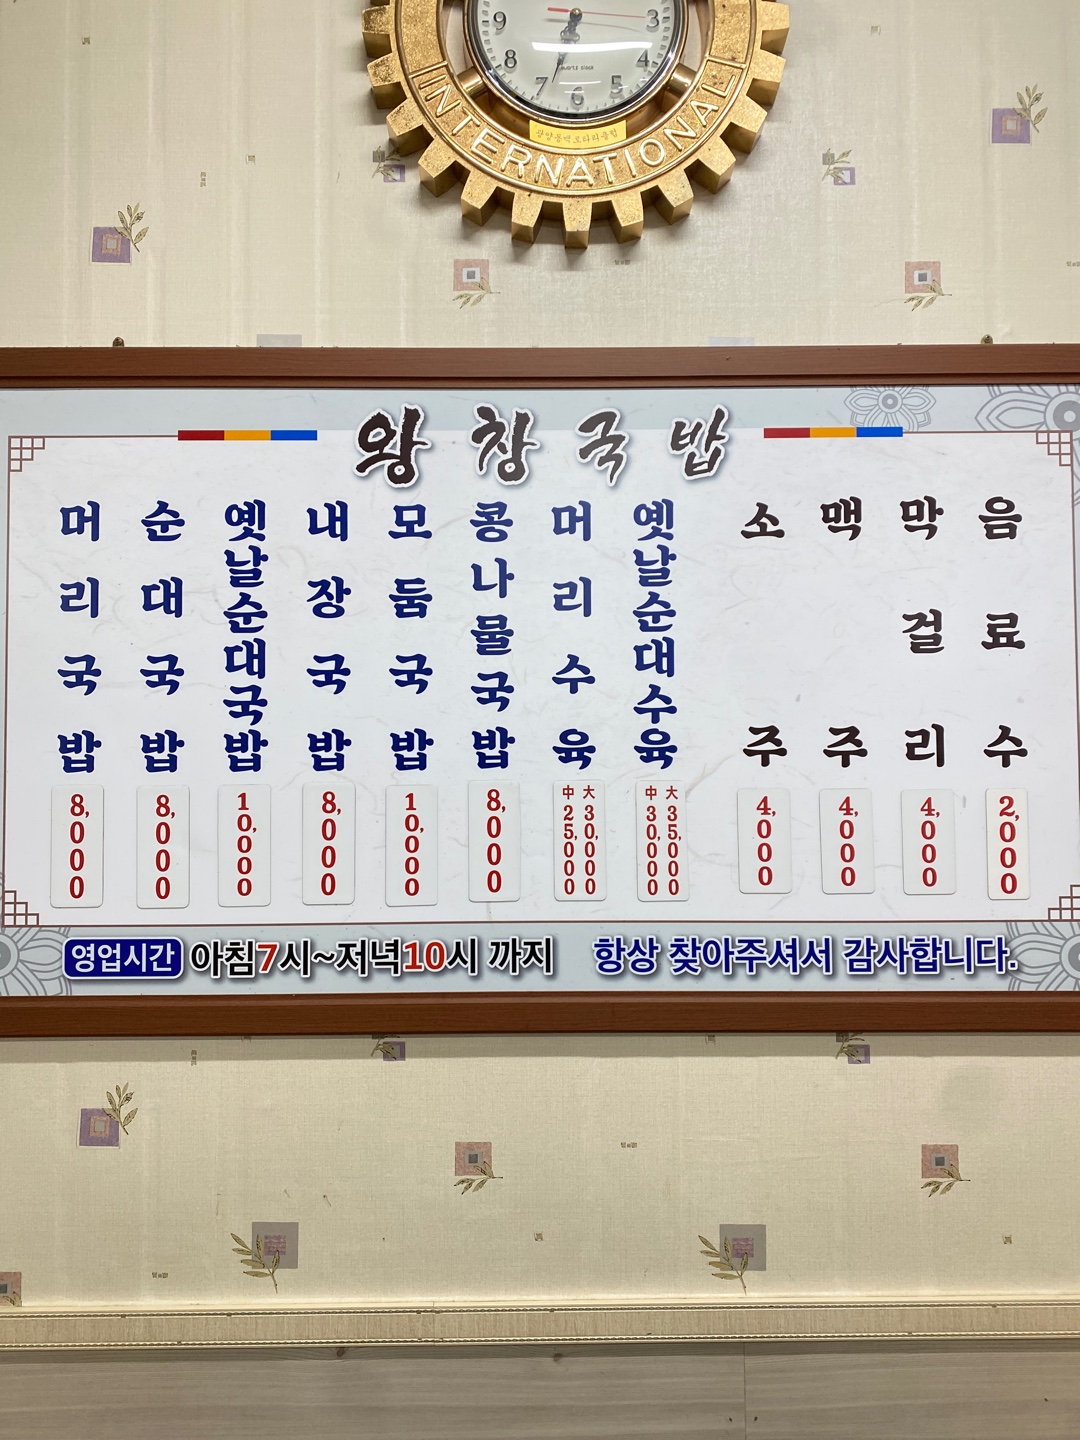 9
3
8
4
7
5
6
광양동백로타리클럽
INTERNATIONAL
왕창국밥
머리국밥
8,000
순대국밥
8,000
옛날순대국밥
10,000
내장국밥
8,000
모둠국밥
10,000
콩나물국밥
8,000
머리수육
中 25,000
大 30,000
옛날순대수육
中 30,000
大 35,000
소주
4,000
맥주
4,000
막걸리
4,000
음료수
2,000
영업시간 아침7시~저녁10시 까지 항상 찾아주셔서 감사합니다.